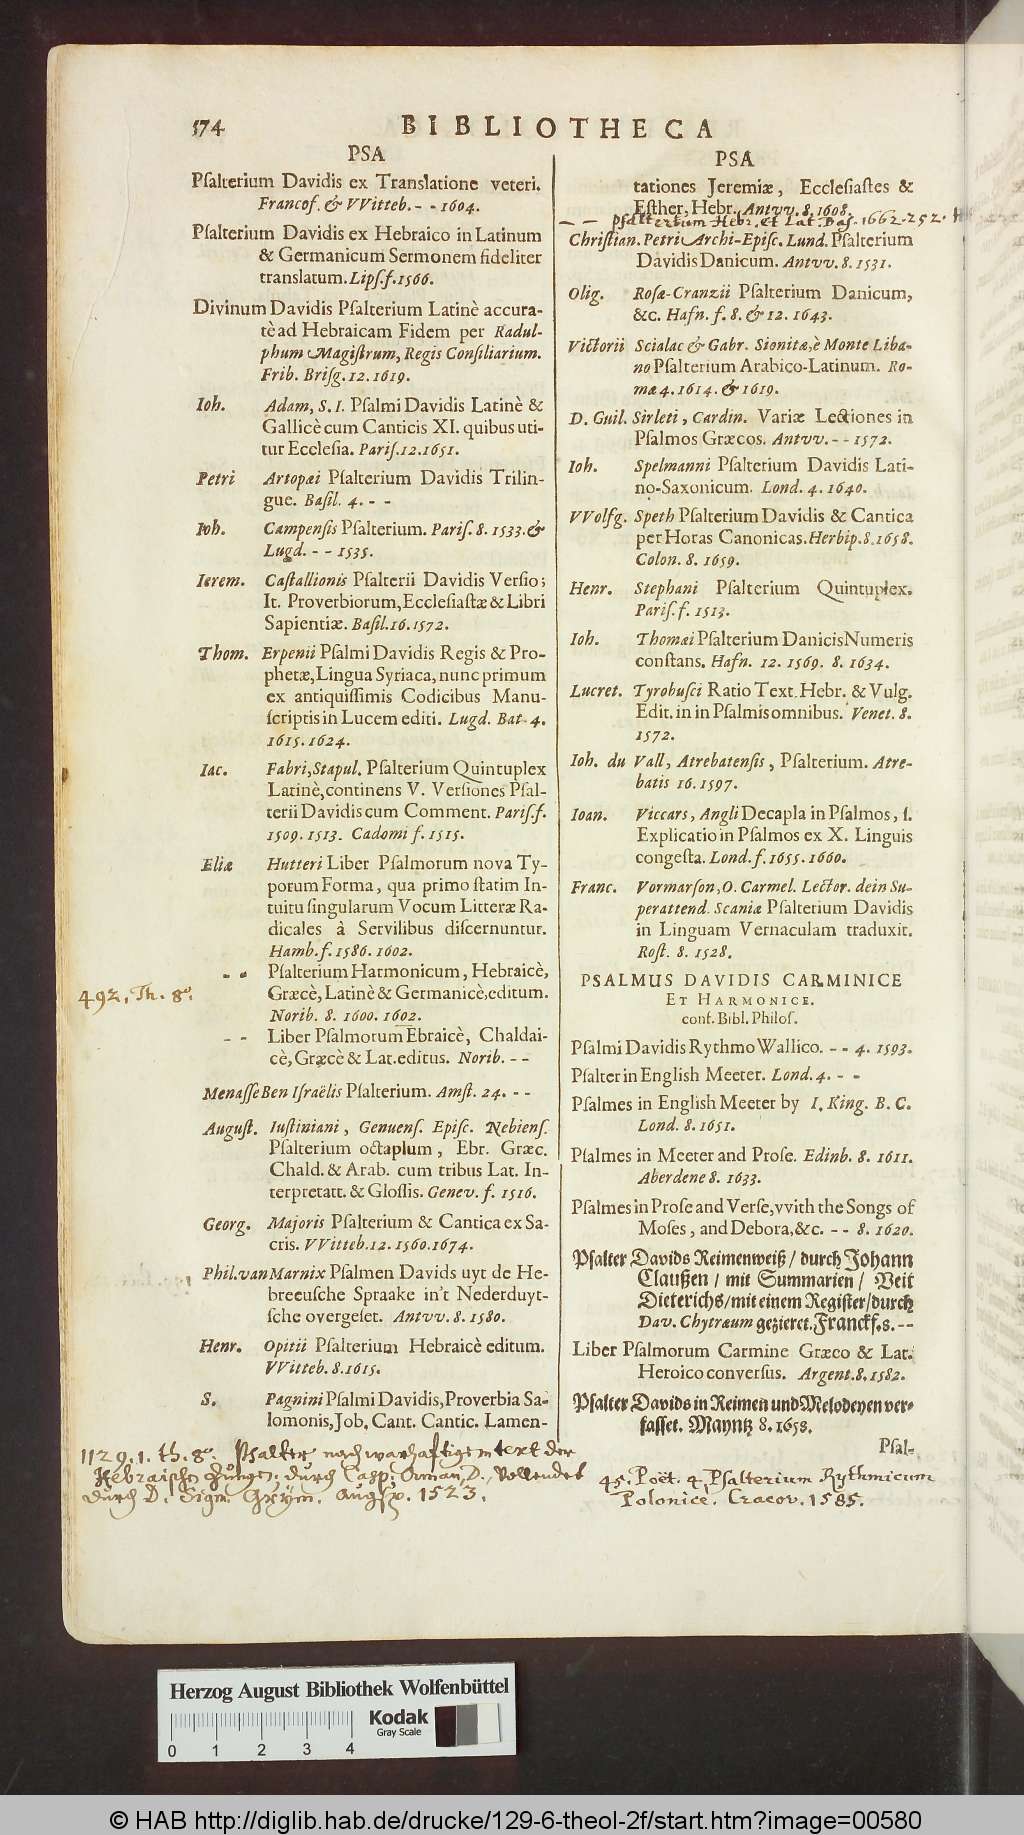 574 BIBLIOTHECA
PSA
Pſalterium Davidis ex Translatione veteri.
Francof. & VVitteb. - - 1604.
Pſalterium Davidis ex Hebraico in Latinum
& Germanicum Sermonem fideliter
translatum. Lipſ. f. 1566.
Divinum Davidis Pſalterium Latinè accura-
tè ad Hebraicam Fidem per Radul-
phum Magiſtrum, Regis Conſiliarium.
Frib. Briſg. 12. 1619.
Ioh. Adam, S. I. Pſalmi Davidis Latinè &
Gallicè cum Canticis XI. quibus uti-
tur Eccleſia. Pariſ. 12. 1651.
Petri Artopæi Pſalterium Davidis Trilin-
gue. Baſil. 4. - -
Ioh. Campenſis Pſalterium. Pariſ. 8. 1533. &
Lugd. - - 1535.
Ierem. Caſtallionis Pſalterii Davidis Verſio;
It. Proverbiorum, Eccleſiaſtæ & Libri
Sapientiæ. Baſil. 16. 1572.
Thom. Erpenii Pſalmi Davidis Regis & Pro-
phetæ, Lingua Syriaca, nunc primum
ex antiquiſſimis Codicibus Manu-
ſcriptis in Lucem editi. Lugd. Bat. 4.
1615. 1624.
Iac. Fabri, Stapul. Pſalterium Quintuplex
Latinè, continens V. Verſiones Pſal-
terii Davidis cum Comment. Pariſ. f.
1509. 1513. Cadomi f. 1515.
Eliæ Hutteri Liber Pſalmorum nova Ty-
porum Forma, qua primo ſtatim In-
tuitu ſingularum Vocum Litteræ Ra-
dicales à Servilibus diſcernuntur.
Hamb. f. 1586. 1602.
- - Pſalterium Harmonicum, Hebraicè,
492. Th. 8°. Græcè, Latinè & Germanicè, editum.
Norib. 8. 1600. 1602.
- - Liber Pſalmorum Ebraicè, Chaldai-
cè, Græcè & Lat. editus. Norib. - -
Menaſſe Ben Iſraëlis Pſalterium. Amſt. 24. - -
Auguſt. Iuſtiniani, Genuenſ. Epiſc. Nebienſ.
Pſalterium octaplum, Ebr. Græc.
Chald. & Arab. cum tribus Lat. In-
terpretatt. & Gloſſis. Genev. f. 1516.
Georg. Majoris Pſalterium & Cantica ex Sa-
cris. VVitteb. 12. 1560. 1674.
Phil. van Marnix Pſalmen Davids uyt de He-
breeuſche Spraake in't Nederduyt-
ſche overgeſet. Antvv. 8. 1580.
Henr. Opitii Pſalterium Hebraicè editum.
VVitteb. 8. 1615.
S. Pagnini Pſalmi Davidis, Proverbia Sa-
lomonis, Job, Cant. Cantic. Lamen-
1129. 1. th. 8°. Psalter nach warhaftigem text der
Hebraischen Zungen. durch Casp. Aman, D. vollendet
durch D. Sigm. Augsp. 1523.
PSA
tationes Jeremiæ, Eccleſiaſtes &
Eſther, Hebr. Antvv. 8. 1608.
— — Psalterium Hebr. et Lat. Bas. 1662. 252.
Chriſtian. Petri Archi-Epiſc. Lund. Pſalterium
Davidis Danicum. Antvv. 8. 1531.
Olig. Roſæ-Cranzii Pſalterium Danicum,
&c. Hafn. f. 8. & 12. 1643.
Victorii Scialac & Gabr. Sionitæ, è Monte Liba-
no Pſalterium Arabico-Latinum. Ro-
mæ 4. 1614. & 1619.
D. Guil. Sirleti, Cardin. Variæ Lectiones in
Pſalmos Græcos. Antvv. - - 1572.
Ioh. Spelmanni Pſalterium Davidis Lati-
no-Saxonicum. Lond. 4. 1640.
VVolfg. Speth Pſalterium Davidis & Cantica
per Horas Canonicas. Herbip. 8. 1658.
Colon. 8. 1659.
Henr. Stephani Pſalterium Quintuplex.
Pariſ. f. 1513.
Ioh. Thomæi Pſalterium Danicis Numeris
conſtans. Hafn. 12. 1569. 8. 1634.
Lucret. Tyrobuſci Ratio Text. Hebr. & Vulg.
Edit. in in Pſalmis omnibus. Venet. 8.
1572.
Ioh. du Vall, Atrebatenſis, Pſalterium. Atre-
batis 16. 1597.
Ioan. Viccars, Angli Decapla in Pſalmos, ſ.
Explicatio in Pſalmos ex X. Linguis
congeſta. Lond. f. 1655. 1660.
Franc. Vormarſon, O. Carmel. Lector. dein Su-
perattend. Scaniæ Pſalterium Davidis
in Linguam Vernaculam traduxit.
Roſt. 8. 1528.
PSALMUS DAVIDIS CARMINICE
ET HARMONICE.
conf. Bibl. Philoſ.
Pſalmi Davidis Rythmo Wallico. - - 4. 1593.
Pſalter in English Meeter. Lond. 4. - -
Pſalmes in English Meeter by I. King. B. C.
Lond. 8. 1651.
Pſalmes in Meeter and Proſe. Edinb. 8. 1611.
Aberdene 8. 1633.
Pſalmes in Proſe and Verſe, vvith the Songs of
Moſes, and Debora, &c. - - 8. 1620.
Pſalter Davids Reimenweiß / durch Johann
Claußen / mit Summarien / Veit
Dieterichs / mit einem Regiſter / durch
Dav. Chytræum gezieret. Franckf. 8. - -
Liber Pſalmorum Carmine Græco & Lat.
Heroico converſus. Argent. 8. 1582.
Pſalter Davids in Reimen und Melodeyen ver-
faſſet. Mayntz 8. 1658.
Pſal-
45. Poët. 4. Psalterium Rythmicum
Polonice. Cracov. 1585.
Herzog August Bibliothek Wolfenbüttel
Kodak
Gray Scale
0 1 2 3 4
© HAB http://diglib.hab.de/drucke/129-6-theol-2f/start.htm?image=00580